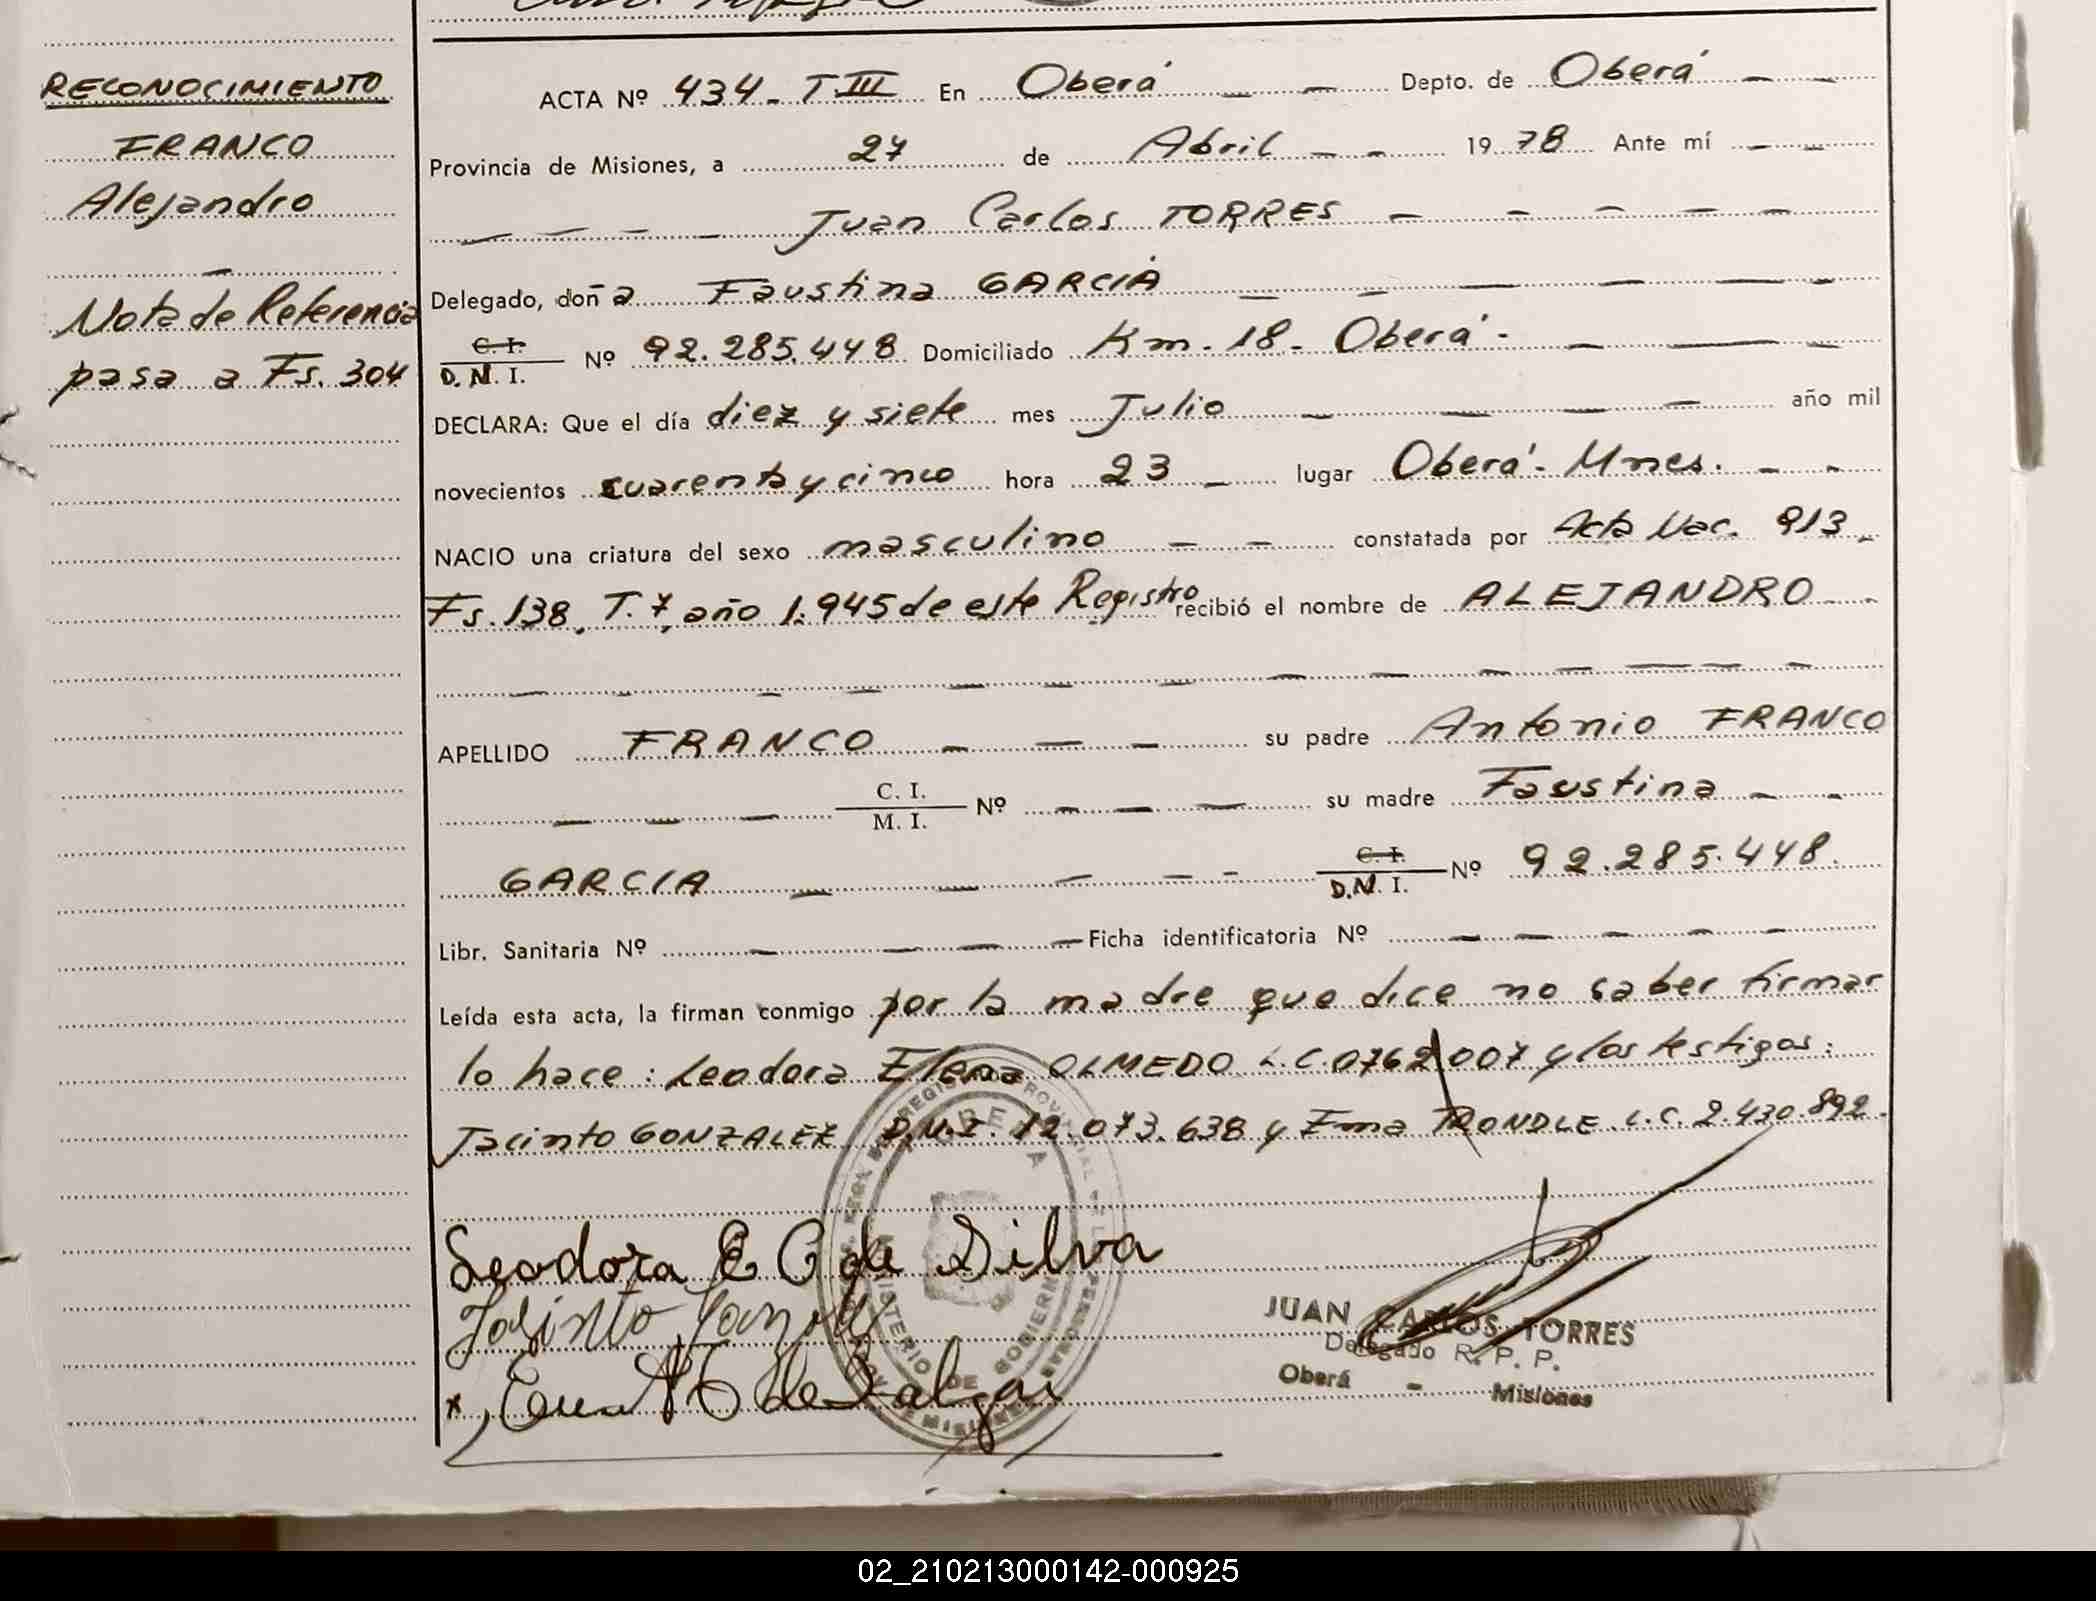 RECONOCIMIENTO
FRANCO
Alejandro
Nota de Referencia
pasa a Fs. 304
ACTA Nº 434 - T III En Oberá — — Depto. de Oberá — —
Provincia de Misiones, a 27 de Abril — — 1978 Ante mí — —
— — — — Juan Carlos TORRES — — — — —
Delegado, doña Faustina GARCIA — — — — —
C. I.
D. N. I. Nº 92.285.448 Domiciliado Km. 18 - Oberá - — — —
DECLARA: Que el día diez y siete mes Julio — — — — año mil
novecientos cuarenta y cinco hora 23 — lugar Oberá - Mnes. — -
NACIO una criatura del sexo masculino — — constatada por Acta Nac. 913 -
Fs. 138, T. 7, año 1.945 de este Registro recibió el nombre de ALEJANDRO - -
— — — — — — — — — — — — — —
APELLIDO FRANCO — — — su padre Antonio FRANCO
— — — C. I.
M. I. Nº — — — su madre Faustina — -
GARCIA — — — — - C. I.
D.N. I. Nº 92.285.448.
Libr. Sanitaria Nº — — — — Ficha identificatoria Nº — — — — —
Leída esta acta, la firman conmigo por la madre que dice no saber firmar
lo hace: Leodora Elena OLMEDO L.C. 0762007 y los testigos:
Jacinto GONZALEZ D.N.I. 12.073.638 y Ema TRONDLE L.C. 2.430.892.
Leodora E O de Silva
Jacinto
JUAN CARLOS TORRES
Delegado R. P. P.
Oberá - Misiones
MINISTERIO DE GOBIERNO
02_210213000142-000925